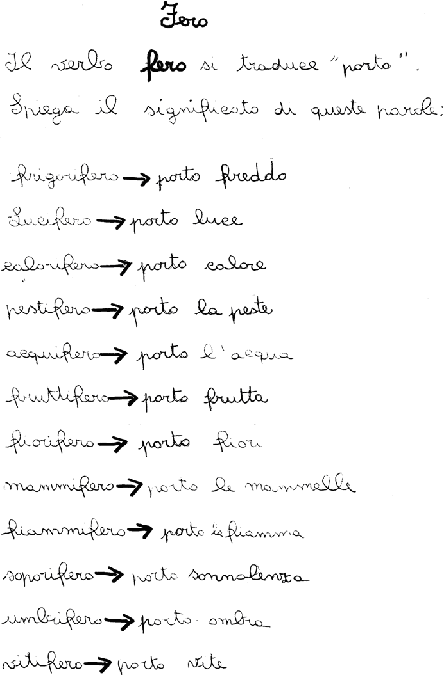 Fero
Il verbo fero si traduce "porto".
Spiega il significato di queste parole:
frigorifero → porto freddo
Lucifero → porto luce
calorifero → porto calore
pestifero → porto la peste
acquifero → porto l'acqua
fruttifero → porto frutta
fiorifero → porto fiori
mammifero → porto le mammelle
fiammifero → porto la fiamma
soporifero → porto sonnolenza
umbrifero → porto ombra
vitifero → porto vite